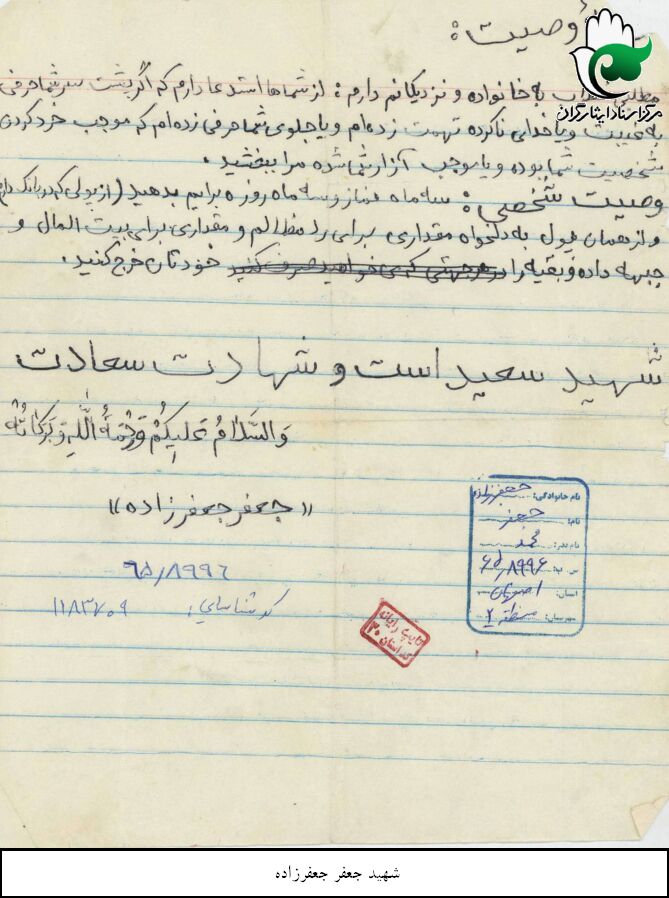 وصیت:
مرکز اسناد ایثارگران
به خانواده و نزدیکانم دارم: از شماها استدعا دارم که اگر پشت سر شما حرفی
به غیبت و یا خدایی ناکرده تهمت زده‌ام و یا جلوی شما حرفی زده‌ام که موجب خرد کردن
شخصیت شما بوده و یا موجب آزار شما شده مرا ببخشید.
وصیت شخصی: سه ماه نماز و سه ماه روزه برایم بدهید (از پولی که در بانک دارم
و از همان پول به دلخواه مقداری برای رد مظالم و مقداری برای بیت المال و
جبهه داده و بقیه را در هر جهتی که می خواهید صرف کنید خودتان خرج کنید.
شهید سعید است و شهادت سعادت
وَالسَّلامُ عَلَیکُمْ وَرَحْمَةُ اللهِ وَبَرَکاتُهُ
«جعفر جعفرزاده»
۶۵/۸۹۹۶
کد شناسایی: ۱۱۸۳۷۰۹
نام خانوادگی: جعفرزاده
نام: جعفر
نام پدر: محمد
ش پ: ۶۵/۸۹۹۶
استان: اصفهان
شهرستان: منطقه ۲
تایپ رایانه
کد استان ۲۰
شهید جعفر جعفرزاده